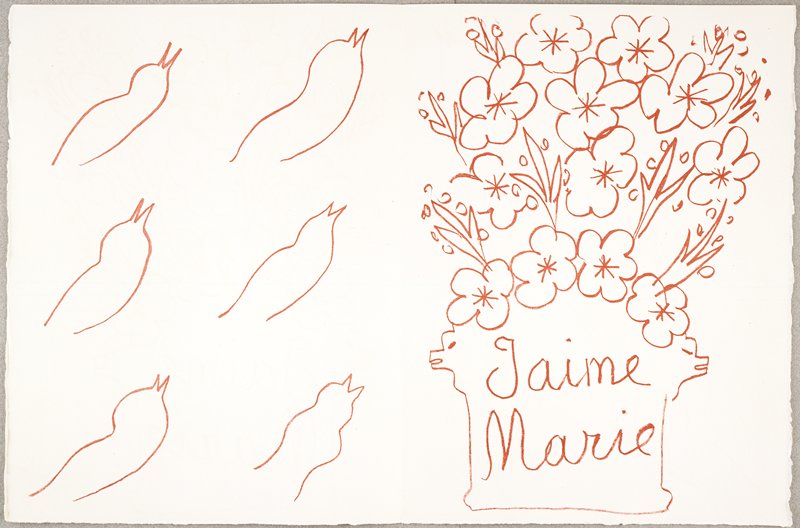 J'aime
Marie